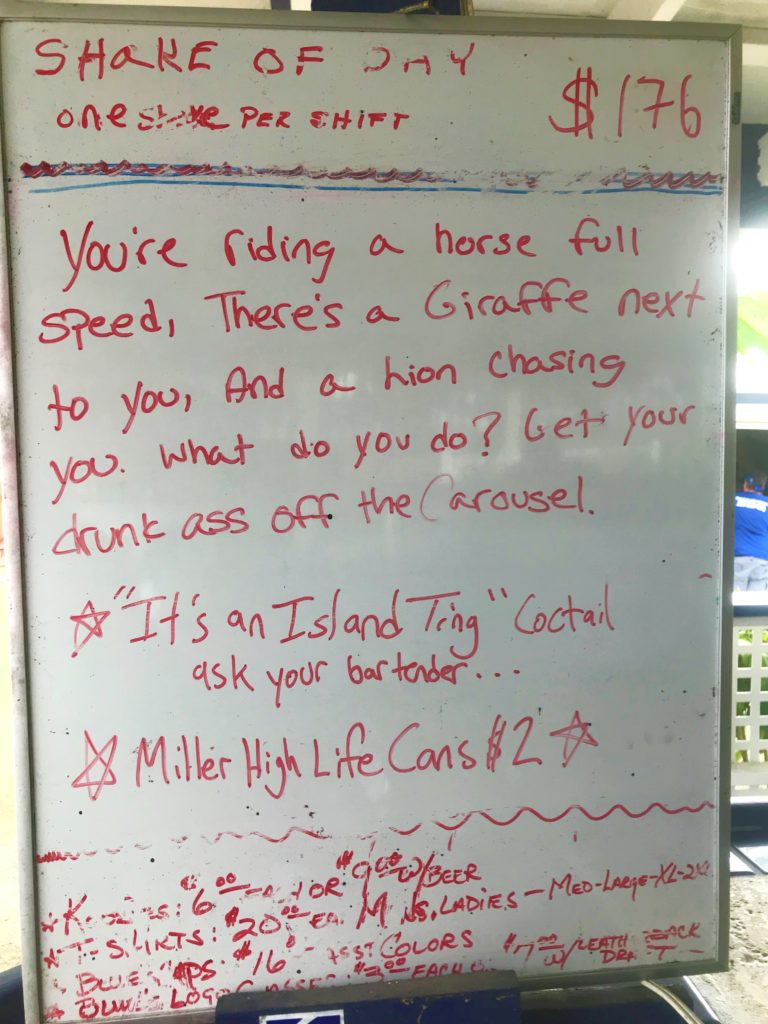 SHAKE OF DAY
one shake PER SHIFT
$176
You're riding a horse full
speed, There's a Giraffe next
to you, And a Lion chasing
you. What do you do? Get your
drunk ass off the Carousel.
"It's an Island Ting" Coctail
ask your bartender...
Miller High Life Cans $2
$6.00 OR $9.00 W/BEER
T-SHIRTS: $20.00 EA. LADIES - MED-LARGE-XL-2XL
BLUE $16 ASST COLORS
LOGO GLASSES $3.00 EACH W/LEATH